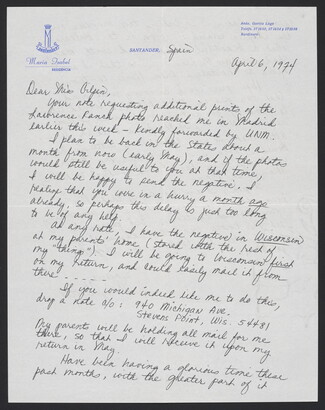 María Isabel
RESIDENCIA
SANTANDER, Spain
April 6, 1974
Dear Miss Gilpin,
Your note requesting additional prints of the
Lawrence Ranch photo reached me in Madrid
earlier this week - kindly forwarded by UNM.
I plan to be back in the States about a
month from now (early May), and if the photos
would still be useful to you at that time,
I will be happy to send the negative. I
realize that you were in a hurry a month ago
already, so perhaps this delay is just too long
to be of any help.
As any rate, I have the negative in Wisconsin
at my parents' home (stored with the rest of
my "things"). I will be going to Wisconsin first
on my return, and could easily mail it from
there.
If you would indeed like me to do this,
drop a note c/o: 940 Michigan Ave.
Stevens Point, Wis. 54481
My parents will be holding all mail for me
there, so that I will receive it upon my
return in May.
Have been having a glorious time these
past months, with the greater part of it